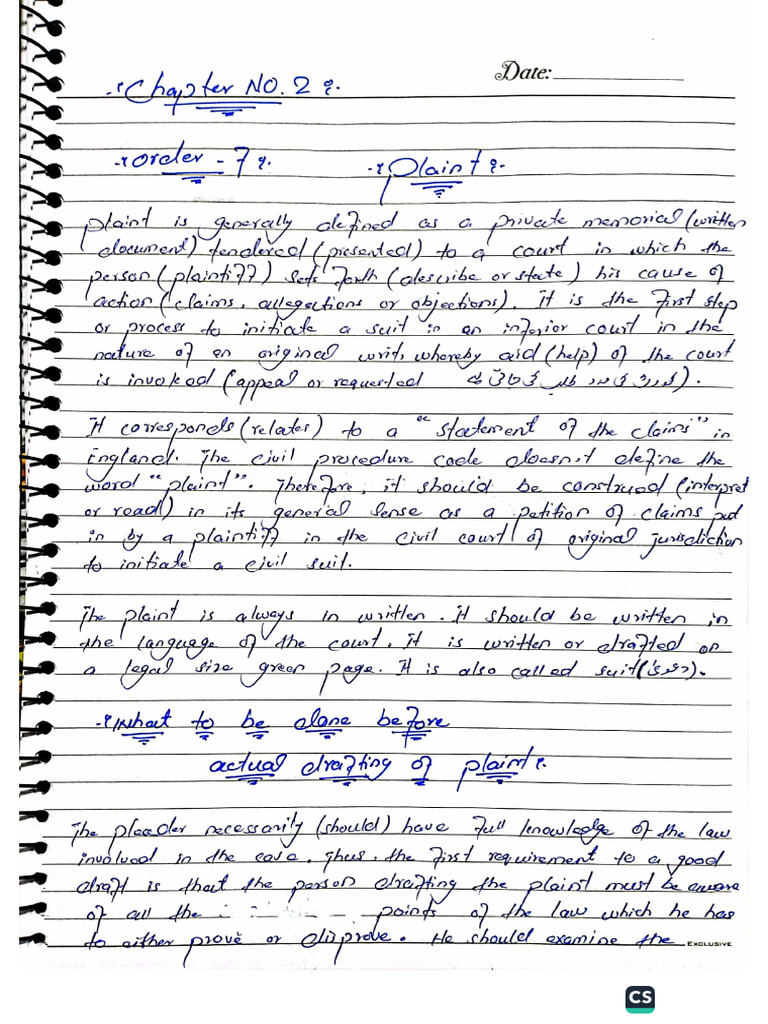 Date:
Chapter NO. 2
Order - 7 Plaint
plaint is generally defined as a private memorial (written
document) tendered (presented) to a court in which the
person (plaintiff) sets forth (describe or state) his cause of
action (claims, allegations or objections). It is the first step
or process to initiate a suit in an inferior court in the
nature of an original writ, whereby aid (help) of the court
is invoked (appeal or requested).
It corresponds (relates) to a "statement of the claims" in
England. The civil procedure code doesn't define the
word "plaint". Therefore, it should be construed (interpret
or road) in its general sense as a petition of claims put
in by a plaintiff in the civil court of original jurisdiction
to initiate a civil suit.
The plaint is always in written. It should be written in
the language of the court. It is written or drafted on
a legal size green page. It is also called suit (دعویٰ).
What to be done before
actual drafting of plaint
The pleader necessarily (should) have full knowledge of the law
involved in the case. Thus, the first requirement to a good
draft is that the person drafting the plaint must be aware
of all the points of the law which he has
to either prove or disprove. He should examine the
EXCLUSIVE
CS